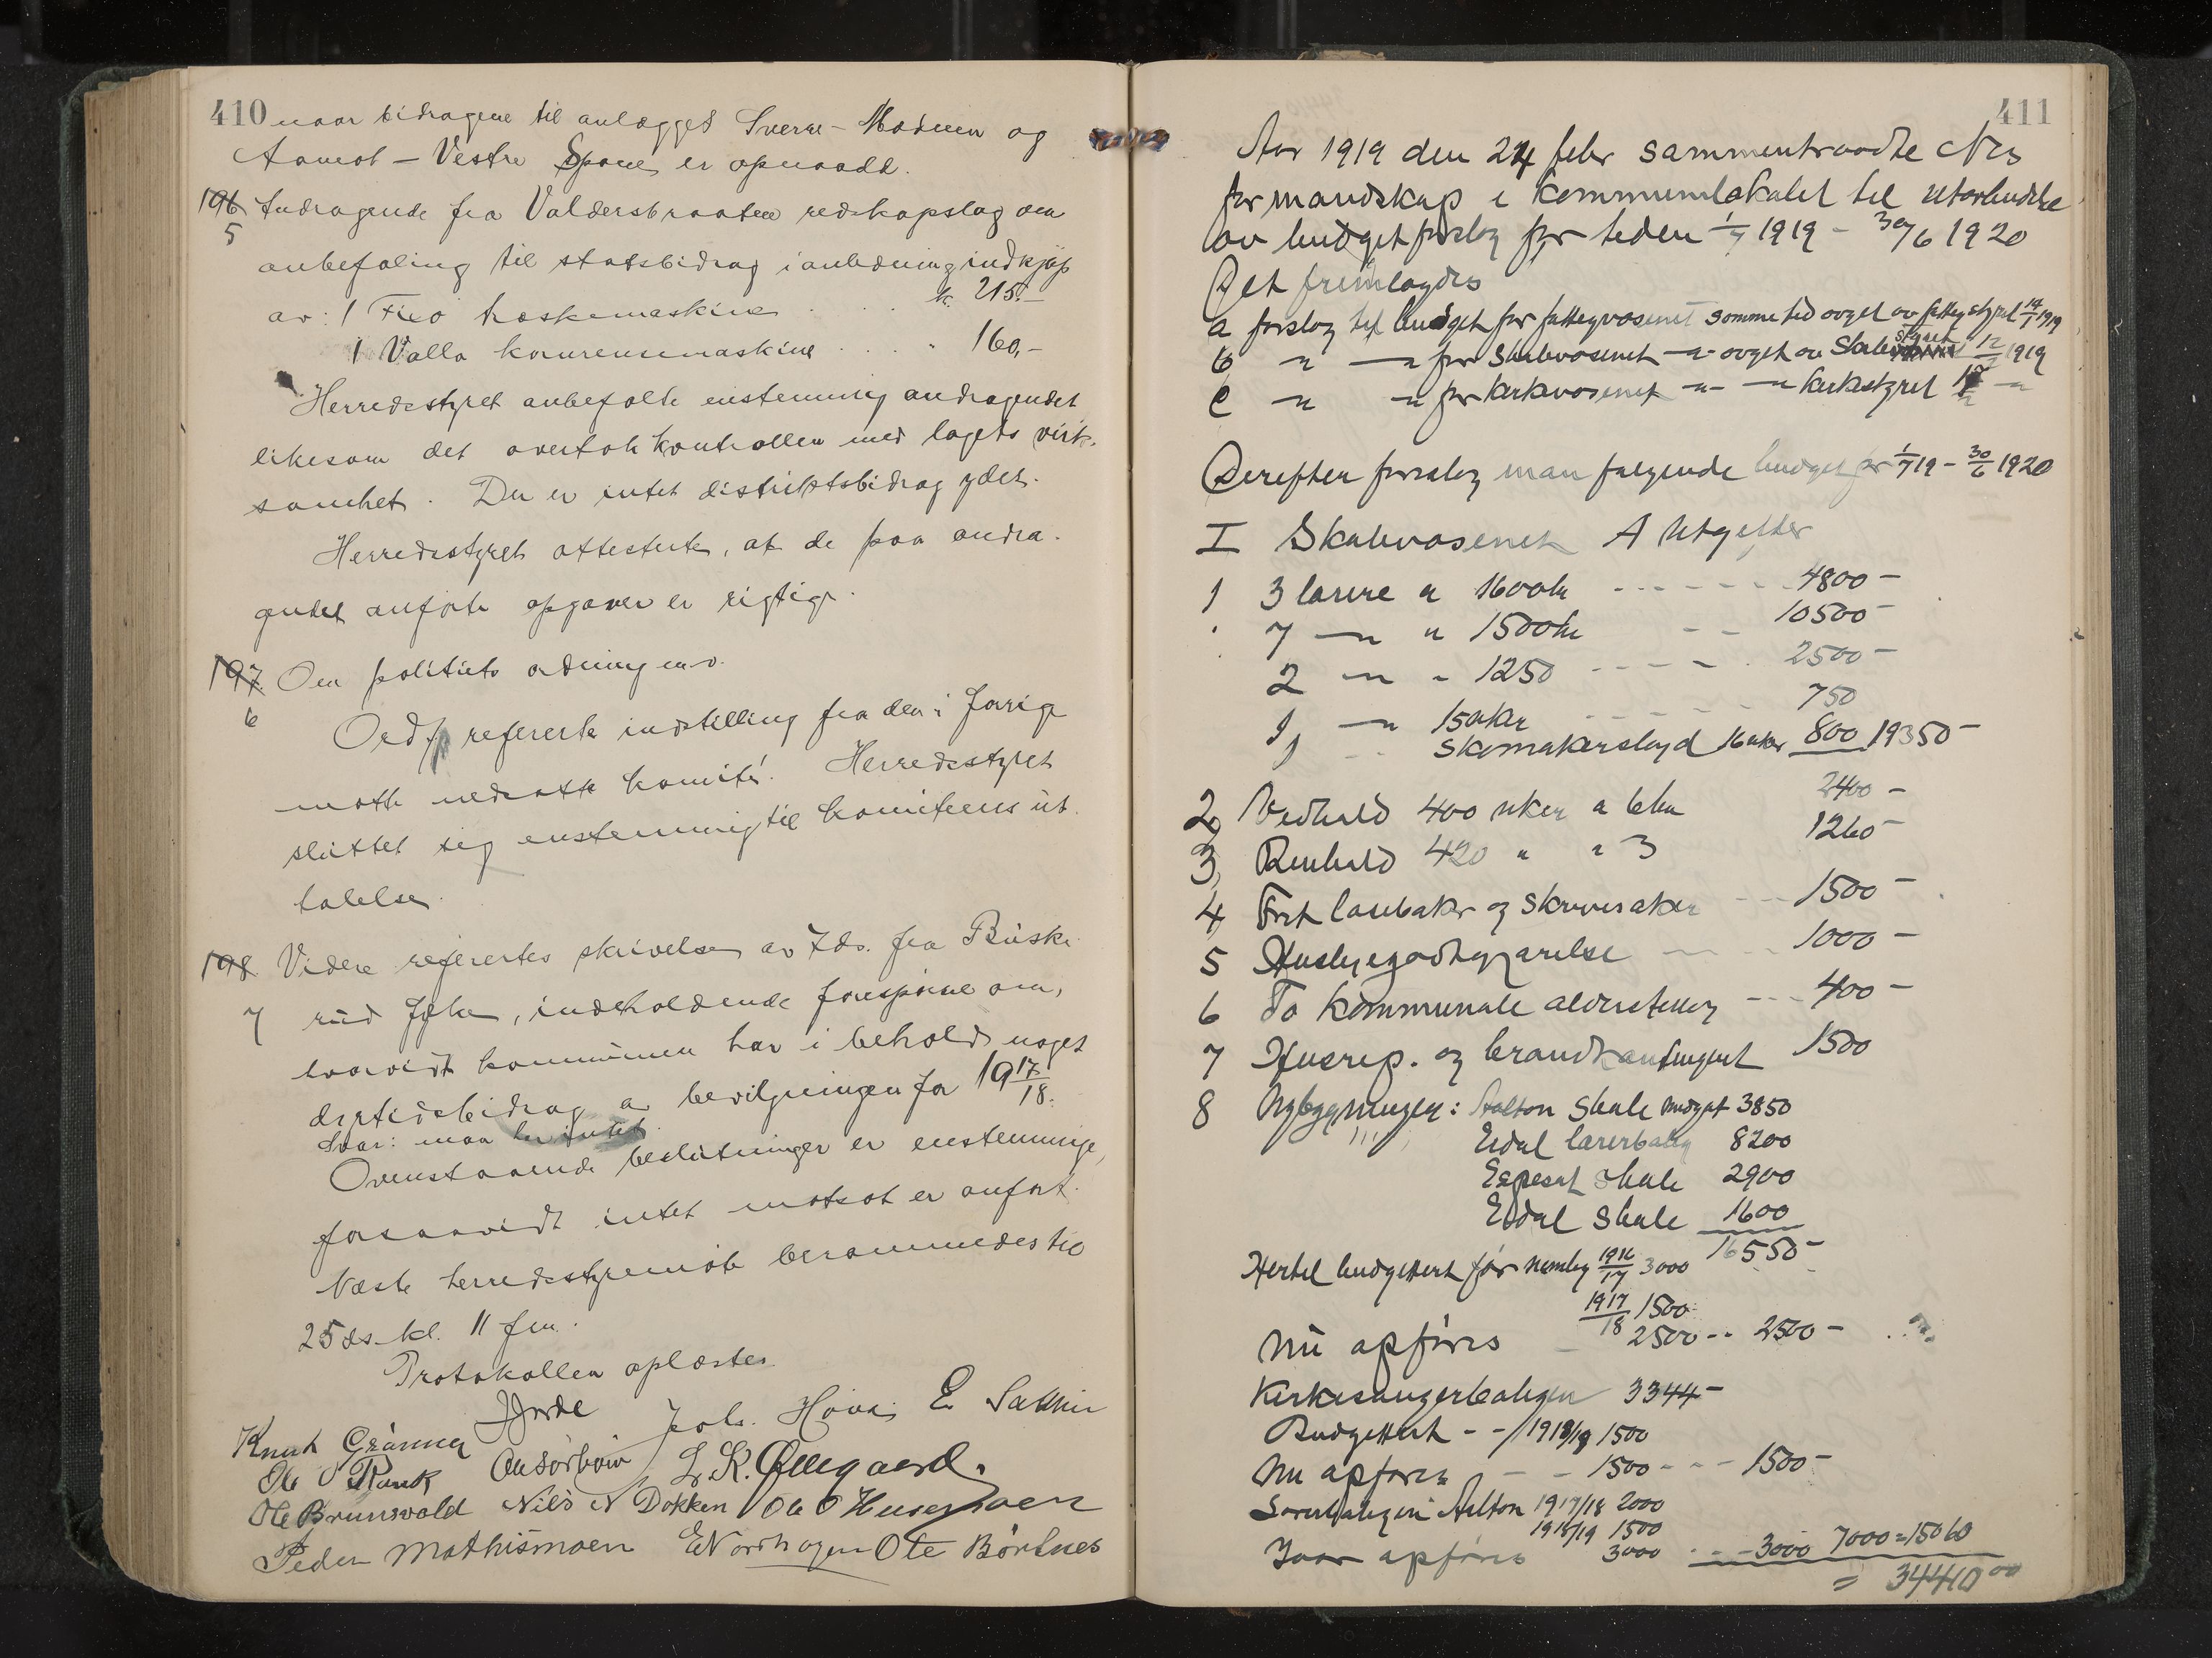 410 naar bidragene til anlægget Sverre-Modien og
Aamot - Vestre Spone er opnaadd.
196 Andragende fra Valdersbraaten redskapslag om
5
anbefaling til statsbidrag i anledning indkjøp
av: 1 Fixo træskemaskine . . . kr. 215.-
1 Valla kornrensemaskine . . . 160,-
Herredsstyret anbefalte enstemmig andragendet
likesom det overtok kontrollen med lagets virk-
somhet. Der er intet distriktsbidrag ydet.
Herredsstyret attesterte, at de paa andra-
gendet anførte opgaver er rigtige.
197. Om politiets ordning m.v.
6
Ordf. refererte indstilling fra den i forrige
møte nedsatte komité. Herredsstyret
sluttet sig enstemmig til komiteens ut-
talelse.
198. Videre refertes skrivelse av 7 ds. fra Buske-
7 rud Fylke, indeholdende forespørsel om,
hvorvidt kommunen har i behold noget
dyrtidsbidrag av bevilgningen for 19 17/18.
Svar: man har intet.
Ovenstaaende beslutninger er enstemmige,
forsaavidt intet motsat er anført.
Næste herredsstyremøte berammedes til
25 ds. kl. 11 fm.
Protokollen oplæstes
Knut Grønner Joh. E
Ole O Runk L. K. Ødegaard.
Ole Brunsvold Nils N Dokken Ole O Husemoen
Peder Mathismoen E Nordhagen Ole Børtnes
411
Aar 1919 den 24 febr sammentraadte Nes
formandskap i kommunelokalet til utarbeidelse
av budgetforslag for tiden 1/7 1919 - 30/6 1920
Det fremlagdes
a forslag til budget for fattigvæsenet somme tid avget av fattigstyret 14/1 1919
b -"- -"- for Skolevæsenet -"- avget av Skolestyret 12/2 1919
c -"- -"- for kirkevæsenet -"- -"- kirkestyret
Derefter foreslog man følgende budget for 1/7 19 - 30/6 1920
I Skolevæsenet A Utgifter
1 3 lærere a 1600 kr - - - - 4800 -
7 -"- " 1500 kr - - 10500 -
2 -"- - 1250 - - - - 2500 -
1 -"- 15 uker - - - - 750
1 - - Skomakersløyd 16 uker 800 19350 -
2, Vedhold 400 uker a 6 kr 2400 -
3, Renhold 420 " " 3 1260 -
4, Frit læsebøker og skrivesaker - - - 1500 -
5 Huslyegodtgjørelse - - 1000 -
6 To kommunale alderstillæg - - - 400 -
7 Husrep. og brandkontingent 1500
8 Nybygninger: Aalton Skole budget 3850
Eidal lærerbolig 8200
Espeset Skole 2900
Eidal Skole 1600
16550 -
Hertil budgettert før nemlig 1916/17 3000
1917/18 1500
Nu opføres - 2500 - - 2500 -
Kirkesangerboligen 3344 -
Budgettert - - 1918/19 1500
Nu opføres - - 1500 - - - 1500 -
Lærerboligen Aalton 1917/18 2000
1918/19 1500
Iaar opføres 3000 - - - 3000 7000 = 15060
= 34410 00